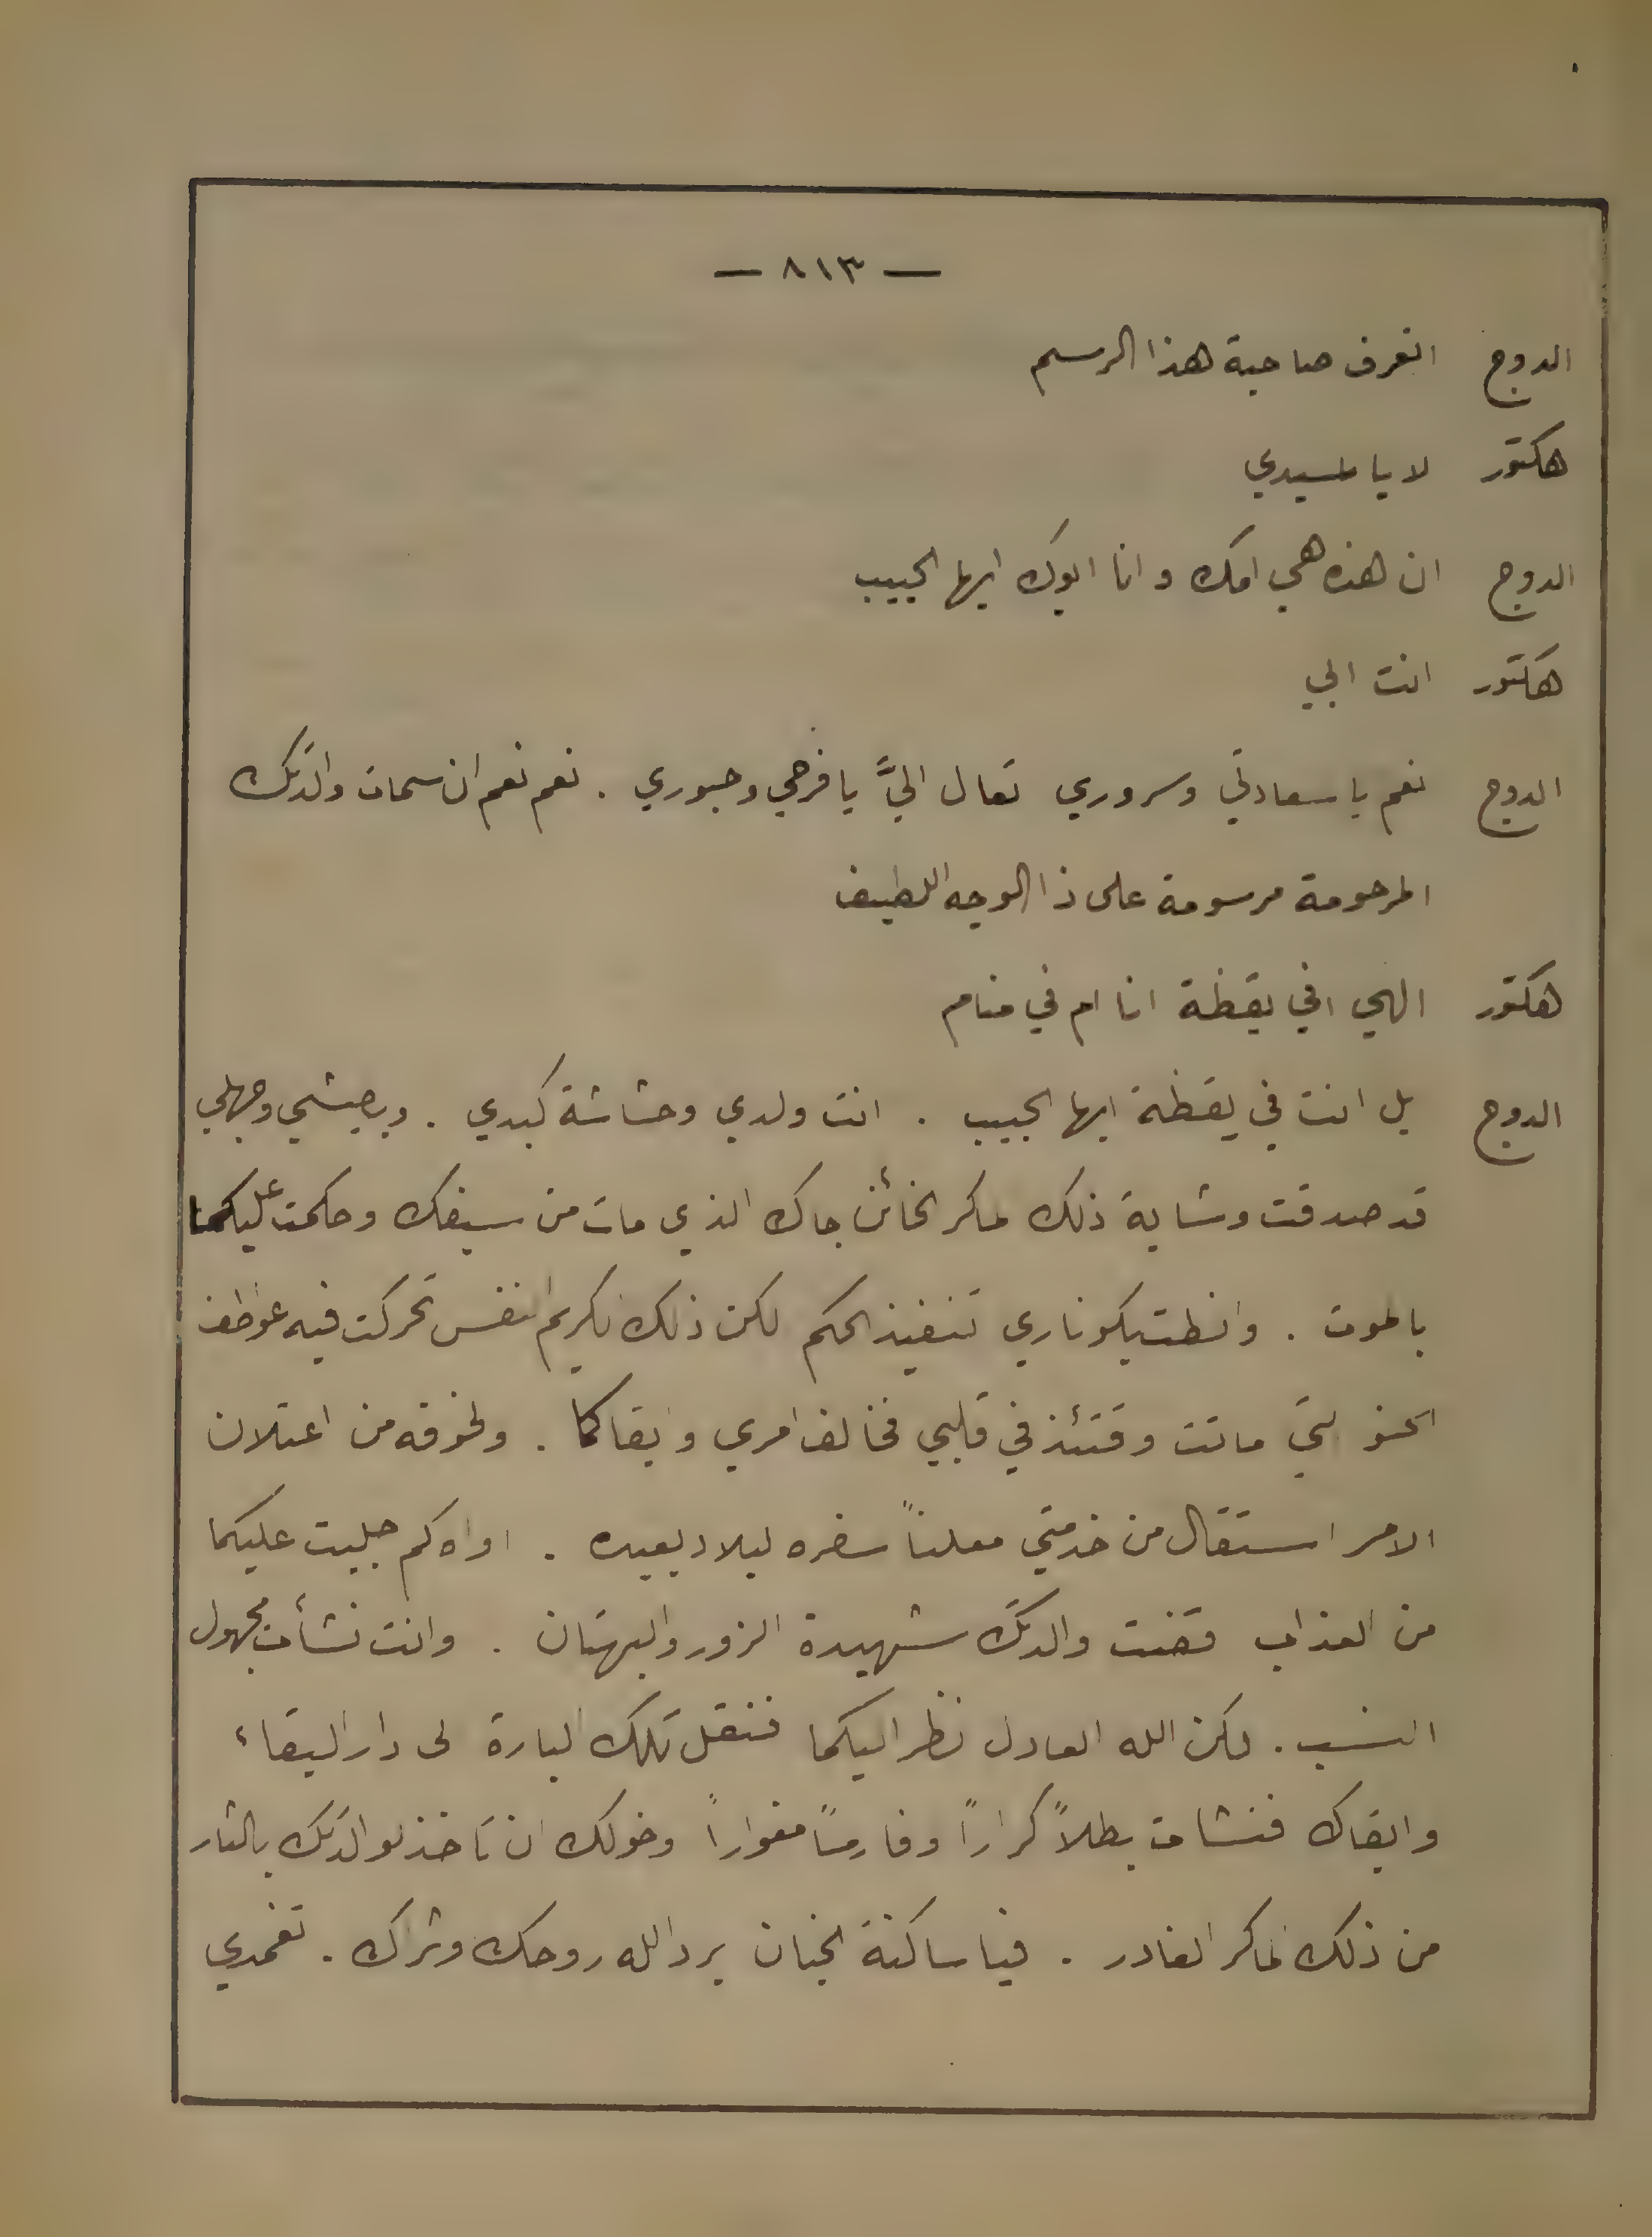 — ٨١٣ —
الدوج اتعرف صاحبة هذا الرسم
هكتور لا يا سيدي
الدوج ان هذه هي امك وانا ابوك ايها الحبيب
هكتور انت ابي
الدوج نعم يا سعادتي وسروري تعال اليَّ يا فرحي وحبوري . نعم نعم ان سمات والدتك
المرحومة مرسومة على ذا الوجه اللطيف
هكتور الهي افي يقظة انا ام في منام
الدوج بل انت في يقظة ايها الحبيب . انت ولدي وحشاشة كبدي . وبطيشي وجهلي
قد صدقت وشاية ذلك الماكر الخائن جاك الذي مات من سيفك وحكمت عليكما
بالموت . وانطت بكوناري تنفيذ الحكم لكن ذلك الكريم النفس تحركت فيه عواطف
الحنو التي ماتت وقتئذ في قلبي فخالف امري وابقاكما . ولخوفه من اعتلان
الامر استقال من خدمتي معلناً سفره لبلاد بعيده . اواه كم جلبت عليكما
من العذاب قضت والدتك شهيدة الزور والبهتان . وانت نشأت مجهول
النسب . لكن الله العادل نظر اليكما فنقل تلك البارة الى دار البقاء
وابقاك فنشات بطلاً كراراً وفارساً مغواراً وخولك ان تاخذ لوالدتك بالثار
من ذلك الماكر الغادر . فيا ساكنة الجنان برد الله روحك وثراك . تغمدي